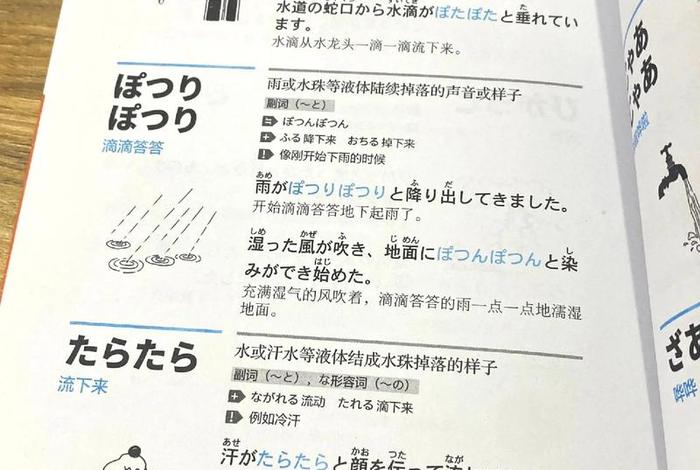 水道の蛇口から水滴がぽたぽたと垂れてい
ます。
水滴从水龙头一滴一滴流下来。
ぽつり
ぽつり
滴滴答答
雨或水珠等液体陆续掉落的声音或样子
副词（～と）
= ぽつんぽつん
+ ふる 降下来 おちる 掉下来
! 像刚开始下雨的时候
あめ ふ だ
雨がぽつりぽつりと降り出してきました。
开始滴滴答答地下起雨了。
しめ かぜ ふ じめん し
湿った風が吹き、地面にぽつんぽつんと染
はじ
みができ始めた。
充满湿气的风吹着，滴滴答答的雨一点一点地濡湿
地面。
たらたら
流下来
水或汗水等液体结成水珠掉落的样子
副词（～と），な形容词（～の）
+ ながれる 流动 たれる 滴下来
! 例如冷汗
あせ かお つた なが
汗がたらたらと顔を伝って
ゃあ
ゃあ
ざあ
哗哗